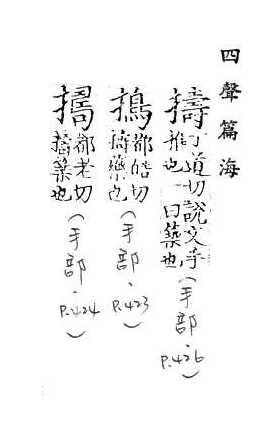 四聲篇海
擣丁道切說文手
推也一曰築也(手部.P.426)
㨶都皓切
擣築也(手部.P.423)
擣都老切
擣築也(手部.P.424)